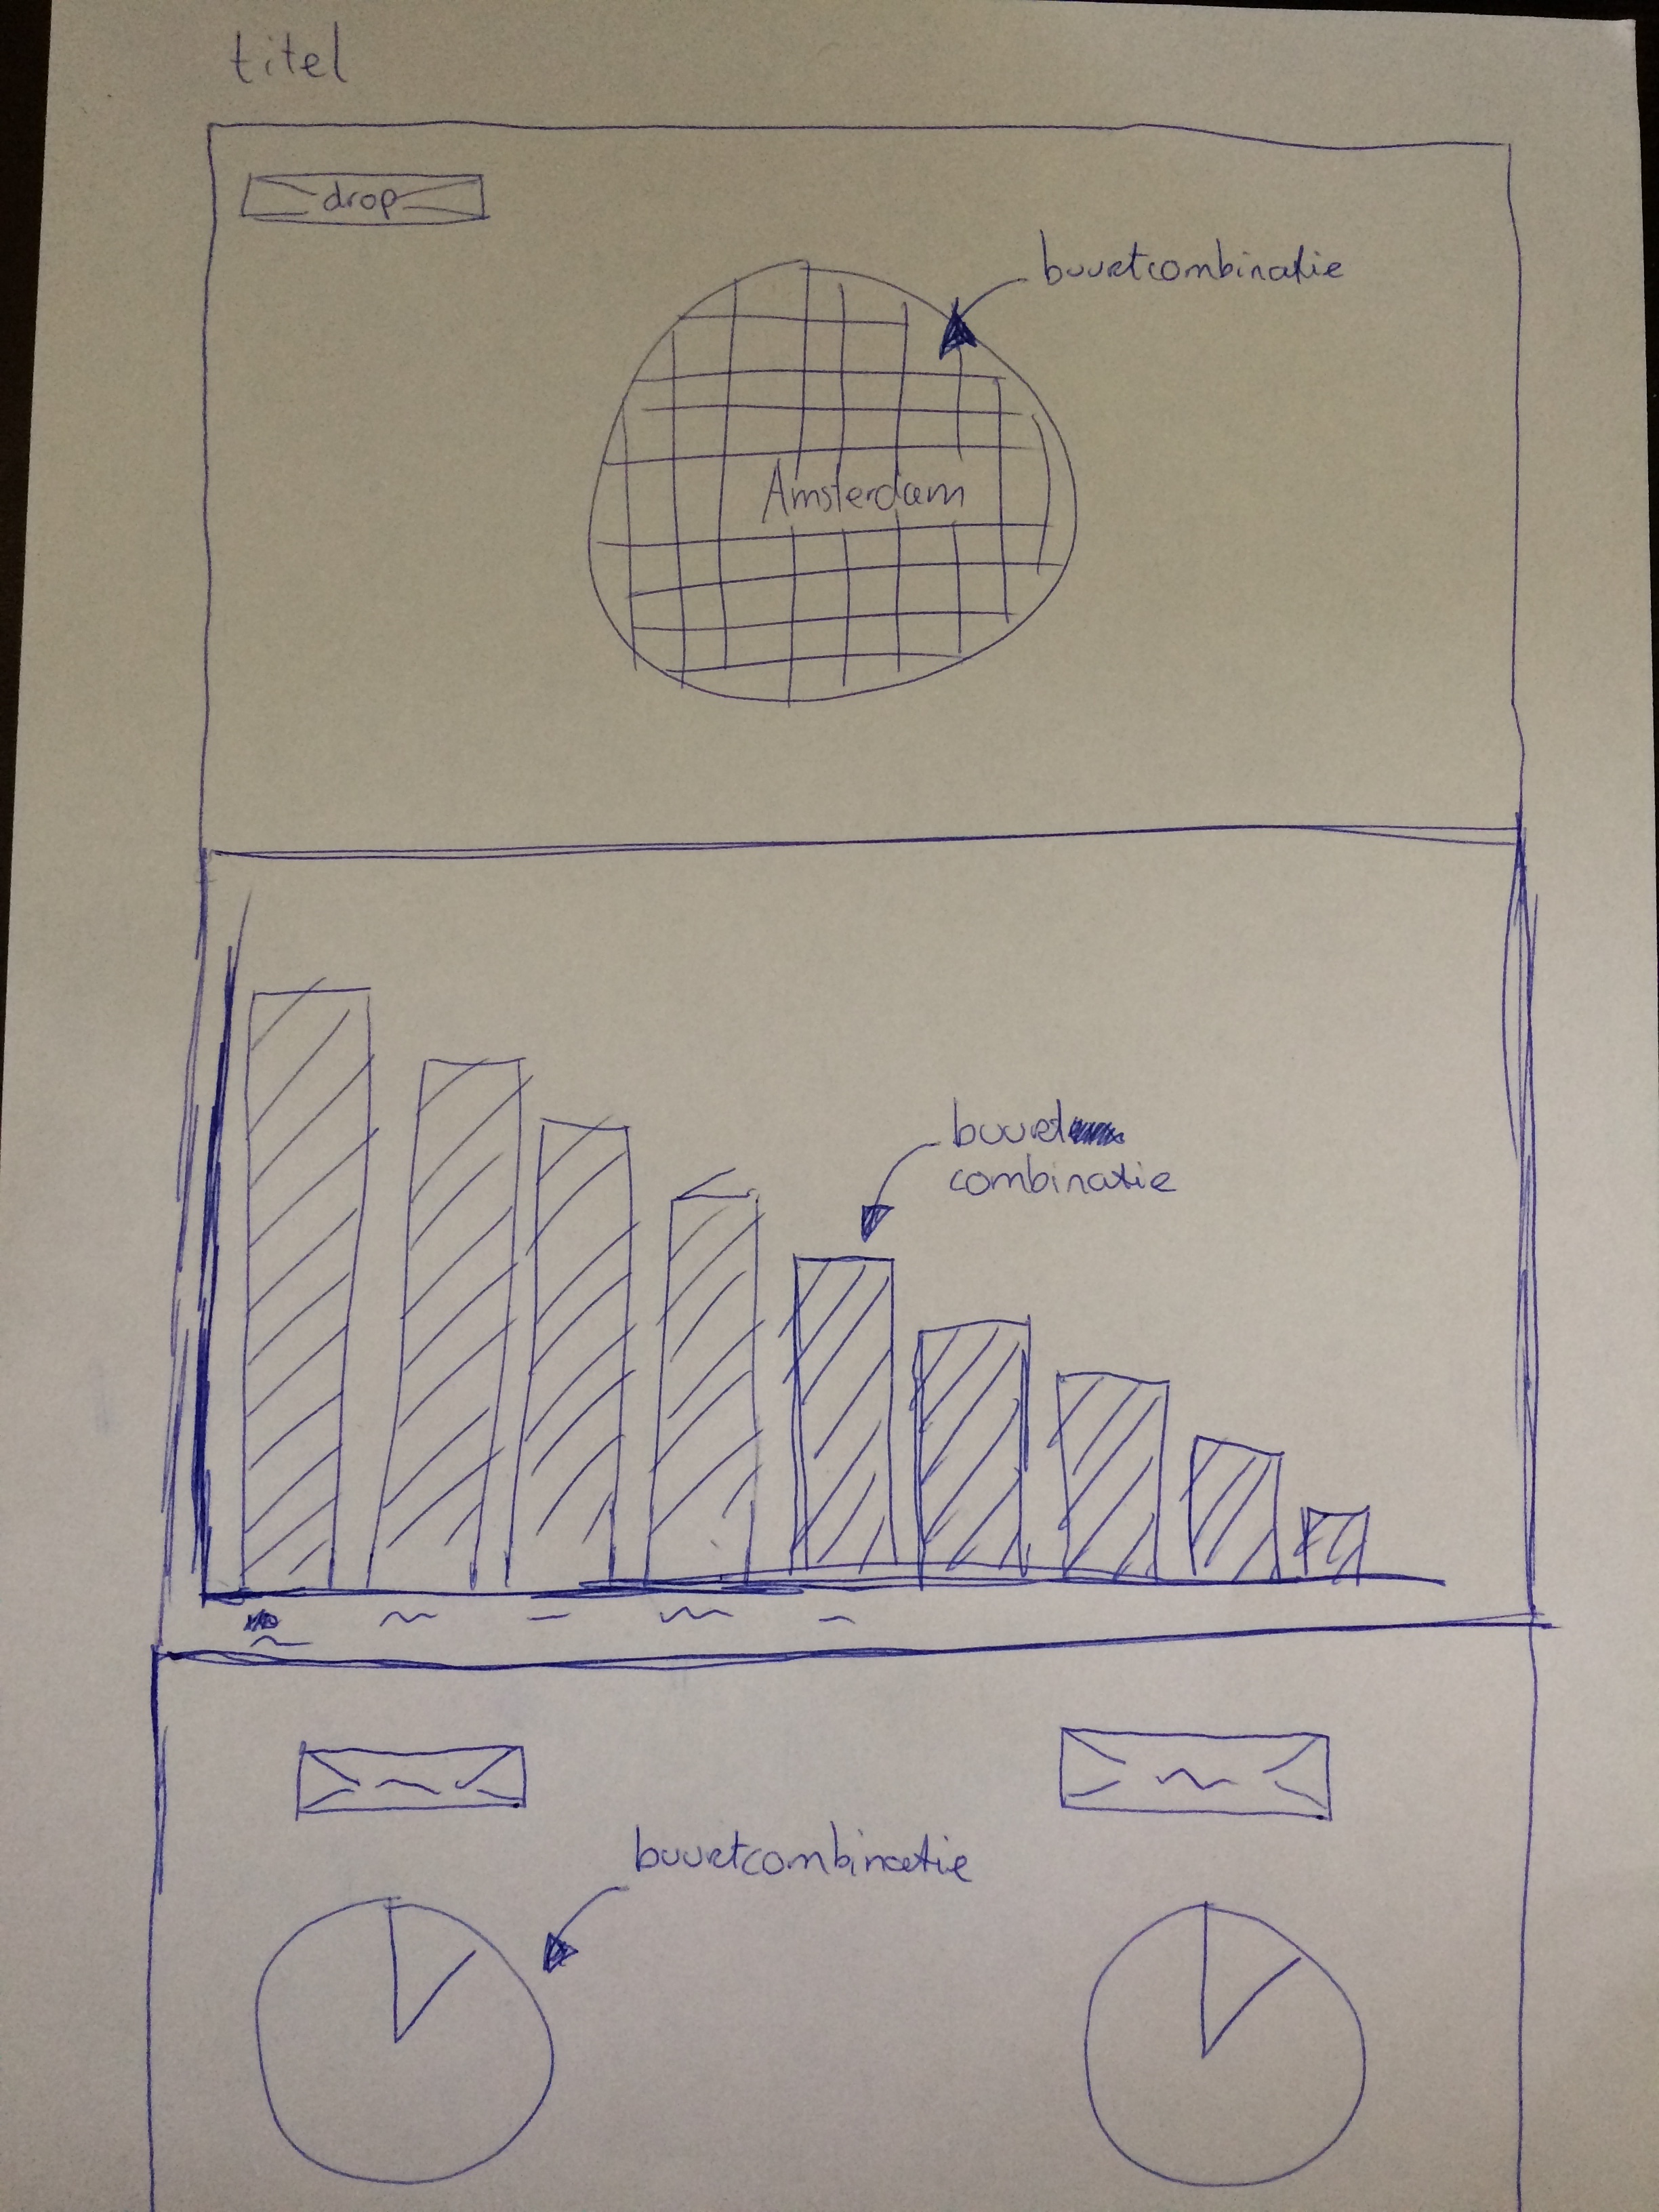 titel
drop
buurtcombinatie
Amsterdam
buurt
combinatie
buurtcombinatie